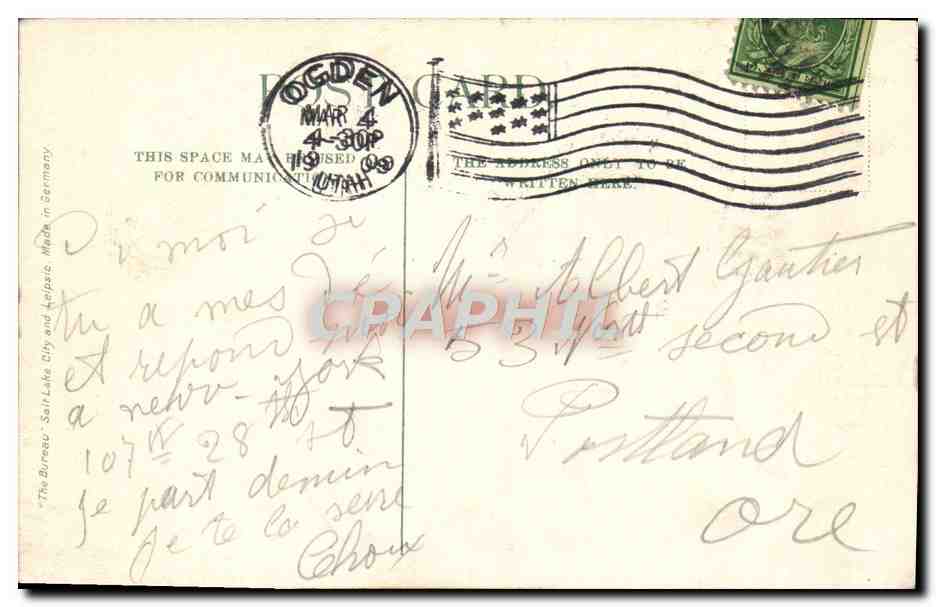 POST CARD
OGDEN
MAR 4
4-30P
1909
UTAH
THIS SPACE MAY BE USED
FOR COMMUNICATION
THE ADDRESS ONLY TO BE
WRITTEN HERE.
"The Bureau" Salt Lake City and Leipsic Made in Germany
moi
tu a mes
et repond
a new-york
107 W 28 st
je part demin
je te la sere
Choux
Mrs Albert Gautier
second st
Portland
Ore
CPAPHIL